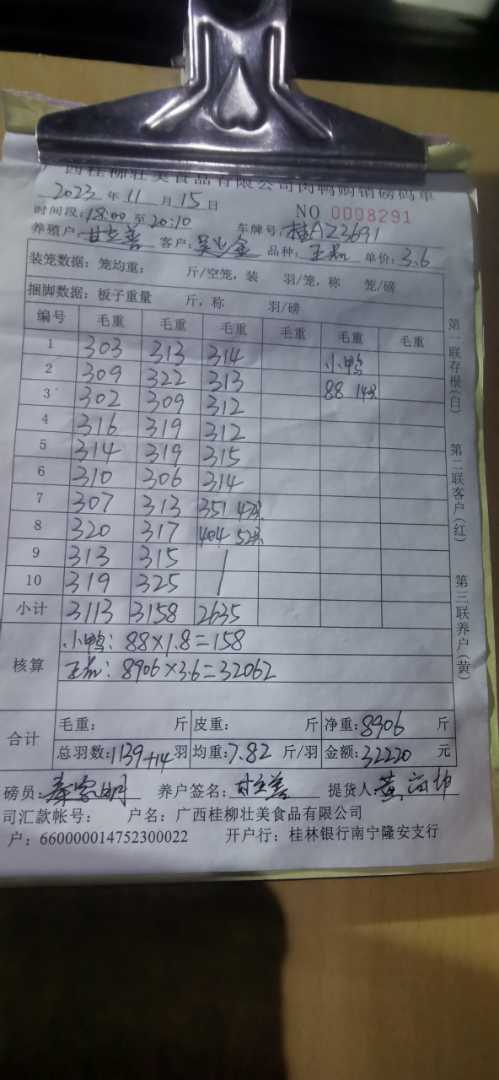 西桂柳壮美食品有限公司肉鸭购销磅码单
2023年11月15日
NO 0008291
时间段:18:00至20:10 车牌号:桂AZ3691
养殖户:甘立善 客户: 品种: 单价:3.6
装笼数据:笼均重: 斤/空笼,装 羽/笼,称 笼/磅
捆脚数据:板子重量 斤,称 羽/磅
编号 毛重 毛重 毛重 毛重 毛重 毛重
1 303 313 314 小鸭
2 309 322 313 88 14只
3 302 309 312
4 316 319 312
5 314 319 315
6 310 306 314
7 307 313 351 47只
8 320 317 404 52只
9 313 315 /
10 319 325 /
小计 3113 3158 2635
核算 小鸭:88×1.8=158
8906×3.6=32062
合计 毛重: 斤 皮重: 斤 净重:8906 斤
总羽数:1139+14羽 均重:7.82 斤/羽 金额:32220 元
磅员: 养户签名:甘立善 提货人
司汇款帐号: 户名:广西桂柳壮美食品有限公司
户:660000014752300022 开户行:桂林银行南宁隆安支行
第一联存根(白)
第二联客户(红)
第三联养户(黄)